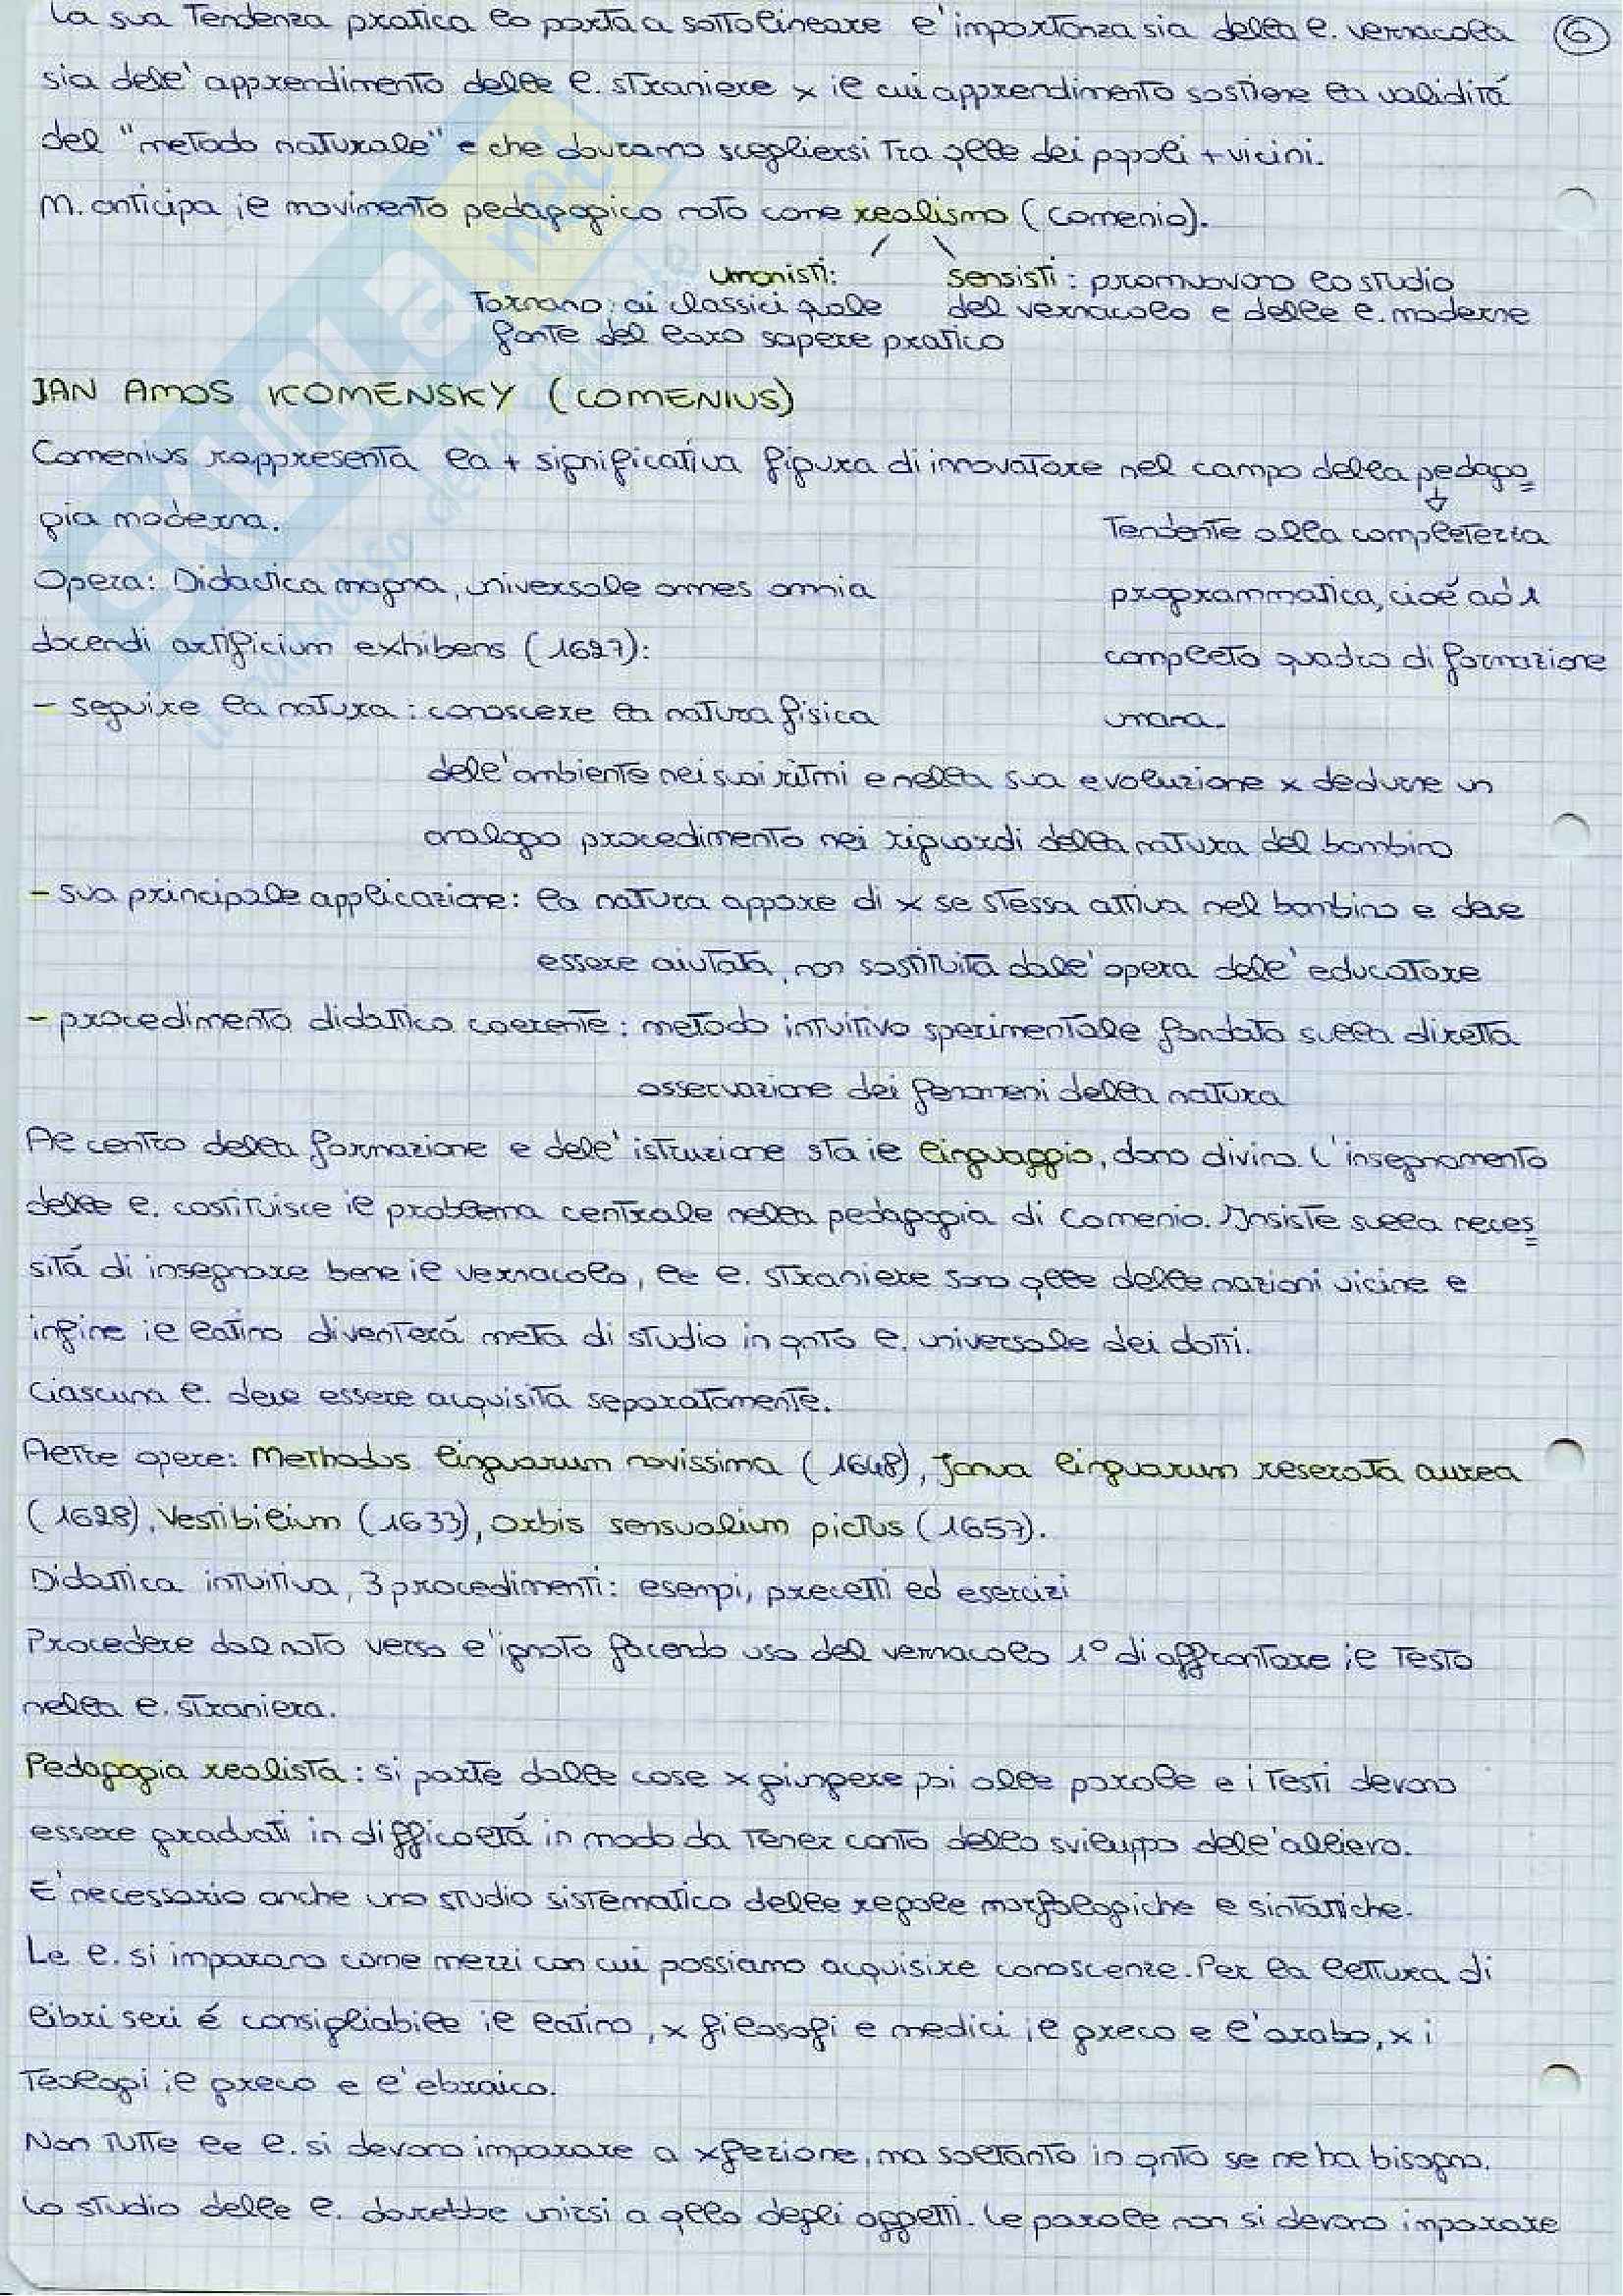 La sua tendenza pratica lo porta a sottolineare l'importanza sia della l. vernacola 6
sia dell'apprendimento delle l. straniere x il cui apprendimento sostiene la validitá
del "metodo naturale" e che dovranno scegliersi tra qlle dei popoli + vicini.
M. anticipa il movimento pedagogico noto come realismo (Comenio).
umanisti:
tornano ai classici quale
fonte del loro sapere pratico
sensisti: promuovono lo studio
del vernacolo e delle l. moderne
JAN AMOS KOMENSKY (COMENIUS)
Comenius rappresenta la + significativa figura di innovatore nel campo della pedago
gia moderna.
tendente alla completezza
programmatica, cioé ad 1
completo quadro di formazione
umana.
Opera: Didactica magna, universale omnes omnia
docendi artificium exhibens (1627):
- seguire la natura: conoscere la natura fisica
dell'ambiente nei suoi ritmi e nella sua evoluzione x dedurre un
analogo procedimento nei riguardi della natura del bambino
- sua principale applicazione: la natura appare di x se stessa attiva nel bambino e deve
essere aiutata, non sostituita dall'opera dell'educatore
- procedimento didattico coerente: metodo intuitivo sperimentale fondato sulla diretta
osservazione dei fenomeni della natura
Al centro della formazione e dell'istruzione sta il linguaggio, dono divino. L'insegnamento
delle l. costituisce il problema centrale nella pedagogia di Comenio. Insiste sulla neces
sitá di insegnare bene il vernacolo, le l. straniere sono qlle delle nazioni vicine e
infine il latino diventerá meta di studio in qnto l. universale dei dotti.
Ciascuna l. deve essere acquisita separatamente.
Altre opere: Methodus linguarum novissima (1648), Janua linguarum reserata aurea
(1628), Vestibilium (1633), Orbis sensualium pictus (1657).
Didattica intuitiva, 3 procedimenti: esempi, precetti ed esercizi
Procedere dal noto verso l'ignoto facendo uso del vernacolo 1° di affrontare il testo
nella l. straniera.
Pedagogia realista: si parte dalle cose x giungere poi alle parole e i testi devono
essere graduati in difficoltá in modo da tener conto dello sviluppo dell'allievo.
E' necessario anche uno studio sistematico delle regole morfologiche e sintattiche.
Le l. si imparano come mezzi con cui possiamo acquisire conoscenze. Per la lettura di
libri seri é consigliabile il latino, x filosofi e medici il greco e l'arabo, x i
teologi il greco e l'ebraico.
Non tutte le l. si devono imparare a xfezione, ma soltanto in qnto se ne ha bisogno.
Lo studio delle l. dovrebbe unirsi a qllo degli oggetti. Le parole non si devono imparare
SKUOLA.net